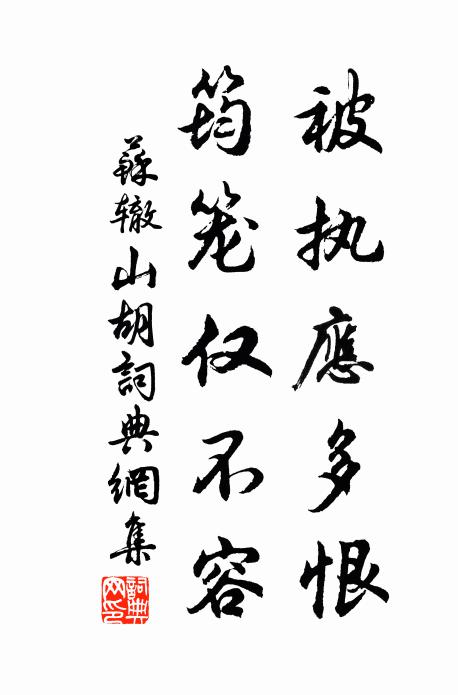 被执應多恨
筠笼仅不容
蘇辙山胡詞典網集
詞典网印